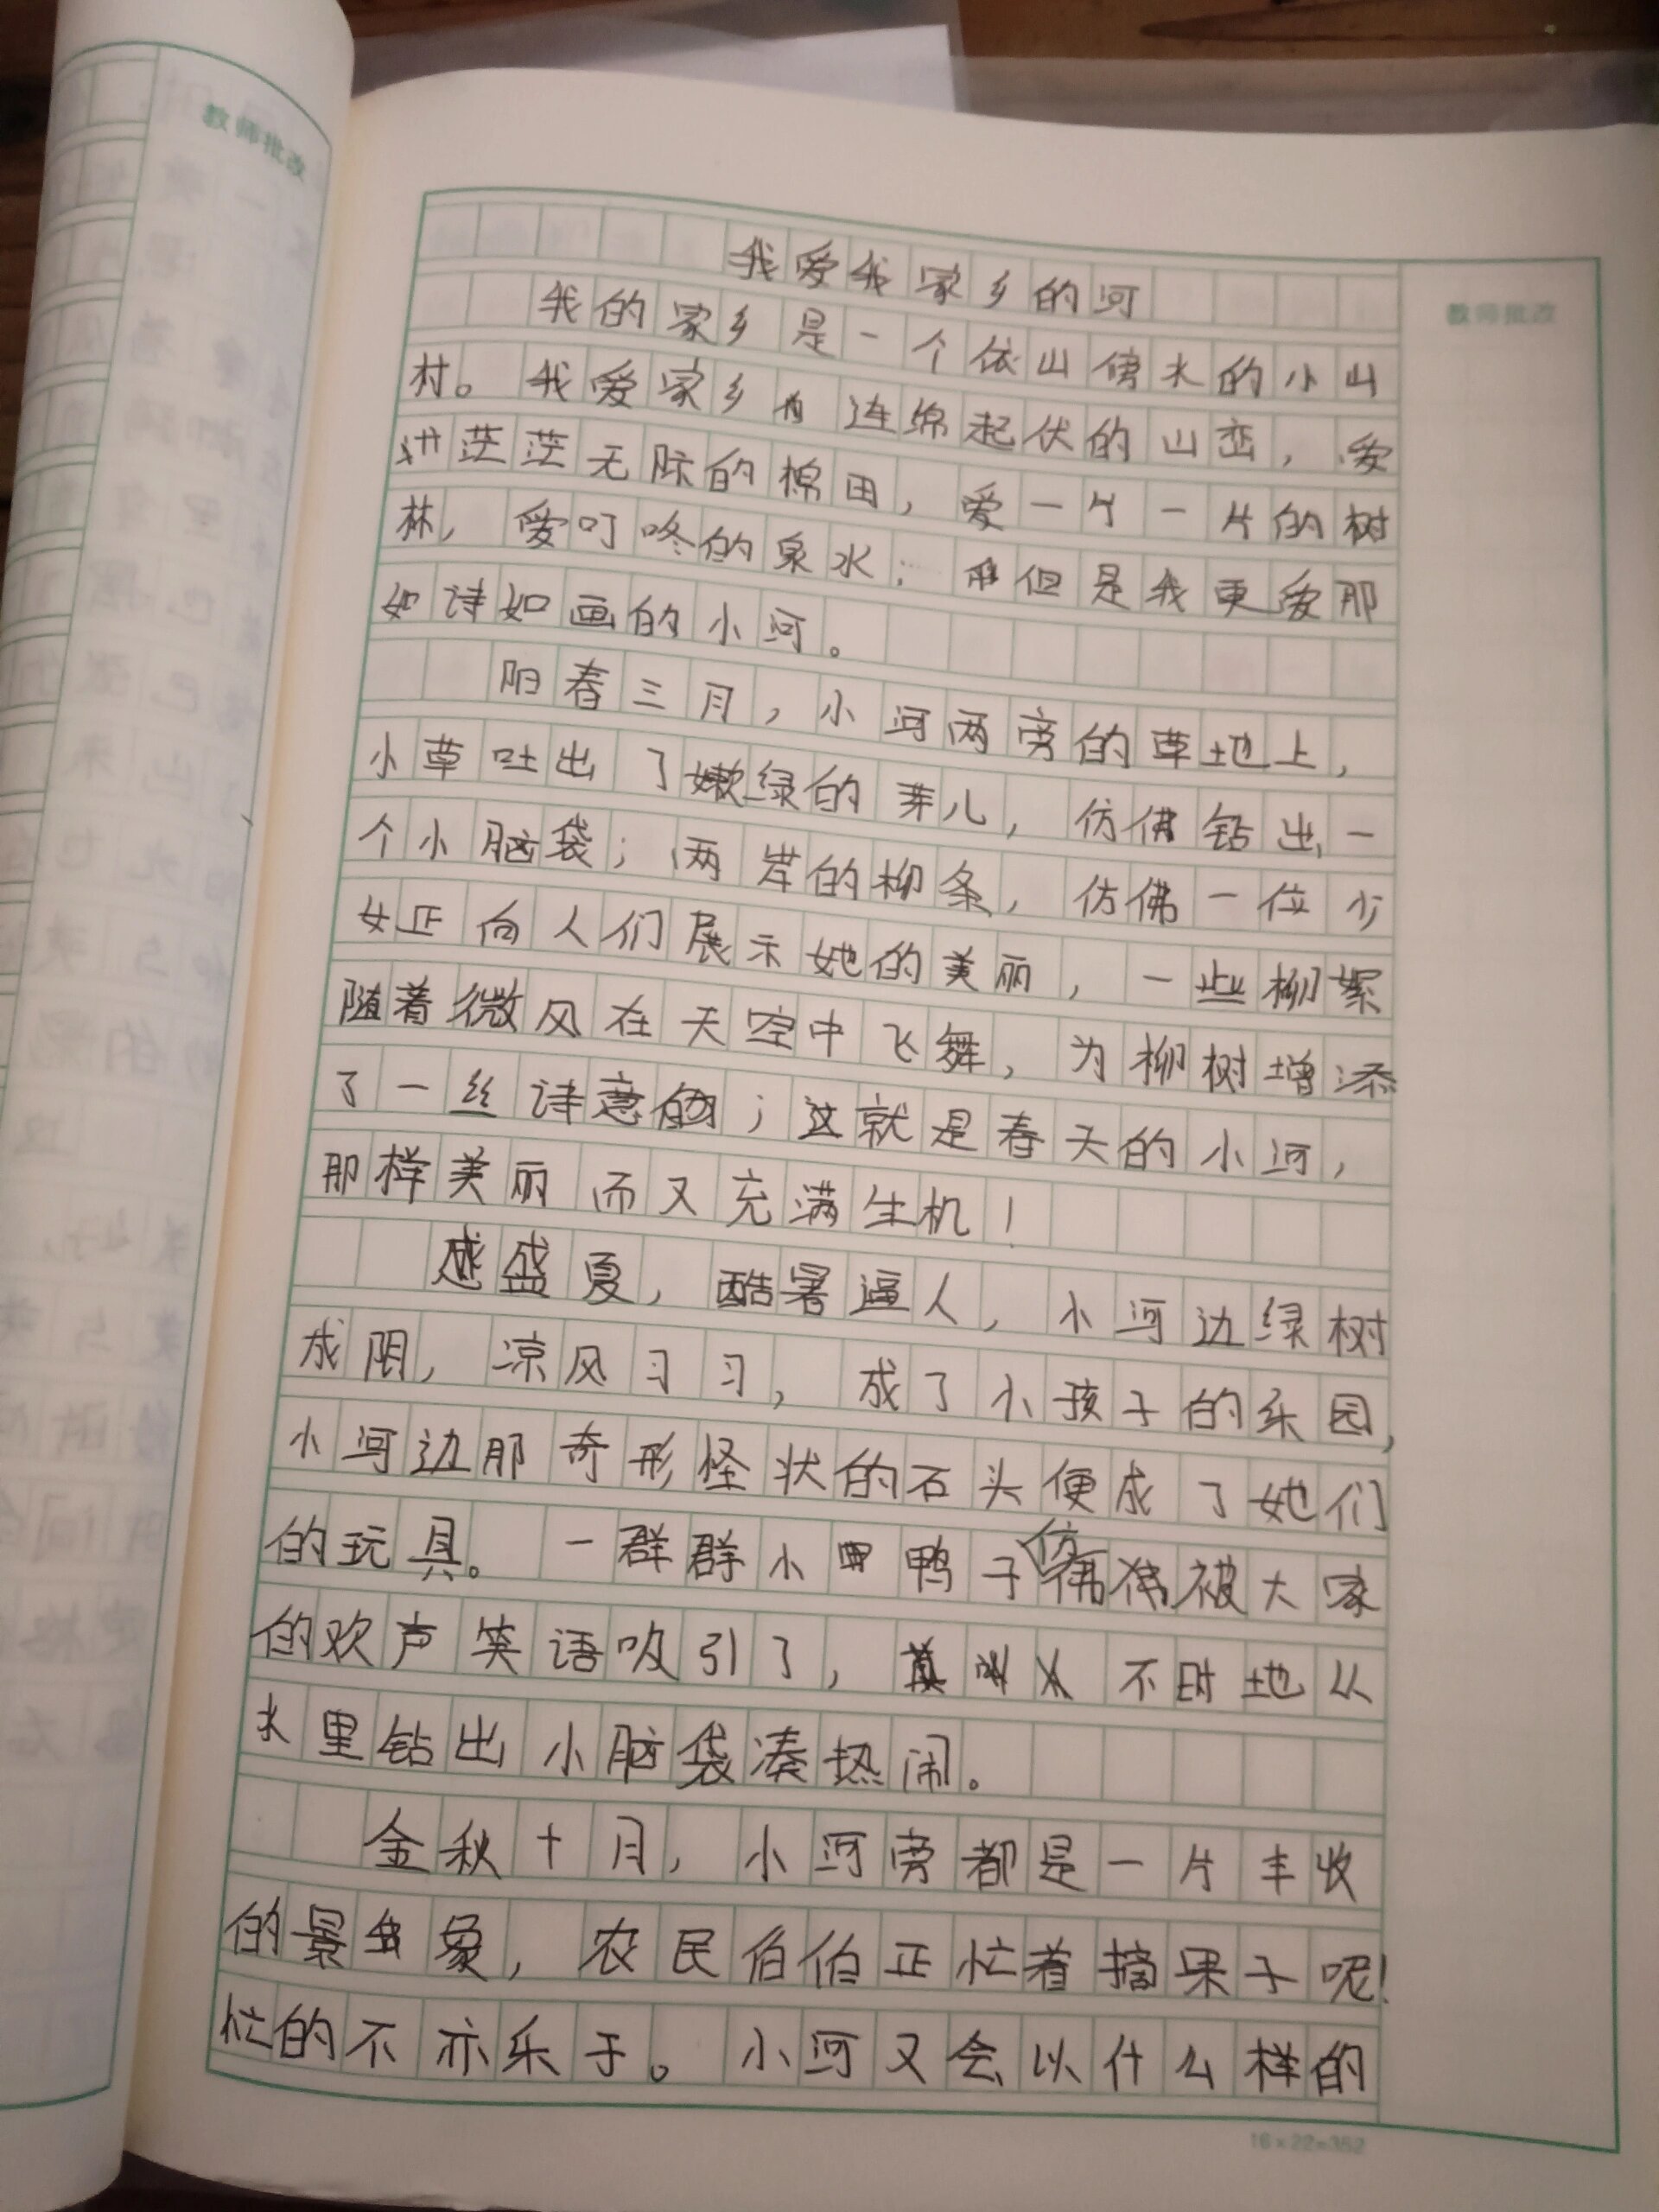 教师批改
教师批改
我爱我家乡的河
我的家乡是一个依山傍水的小山
村。我爱家乡连绵起伏的山峦，爱
茫茫无际的棉田，爱一片一片的树
林，爱叮咚的泉水；但是我更爱那
如诗如画的小河。
阳春三月，小河两旁的草地上，
小草吐出了嫩绿的芽儿，仿佛钻出一
个小脑袋；两岸的柳条，仿佛一位少
女正向人们展示她的美丽，一些柳絮
随着微风在天空中飞舞，为柳树增添
了一丝诗意；这就是春天的小河，
那样美丽而又充满生机！
盛夏，酷暑逼人，小河边绿树
成阴，凉风习习，成了小孩子的乐园，
小河边那奇形怪状的石头便成了她们
的玩具。一群群小鸭子仿佛被大家
的欢声笑语吸引了，不时地从
水里钻出小脑袋凑热闹。
金秋十月，小河旁都是一片丰收
的景象，农民伯伯正忙着摘果子呢！
忙的不亦乐于。小河又会以什么样的
16×22=352